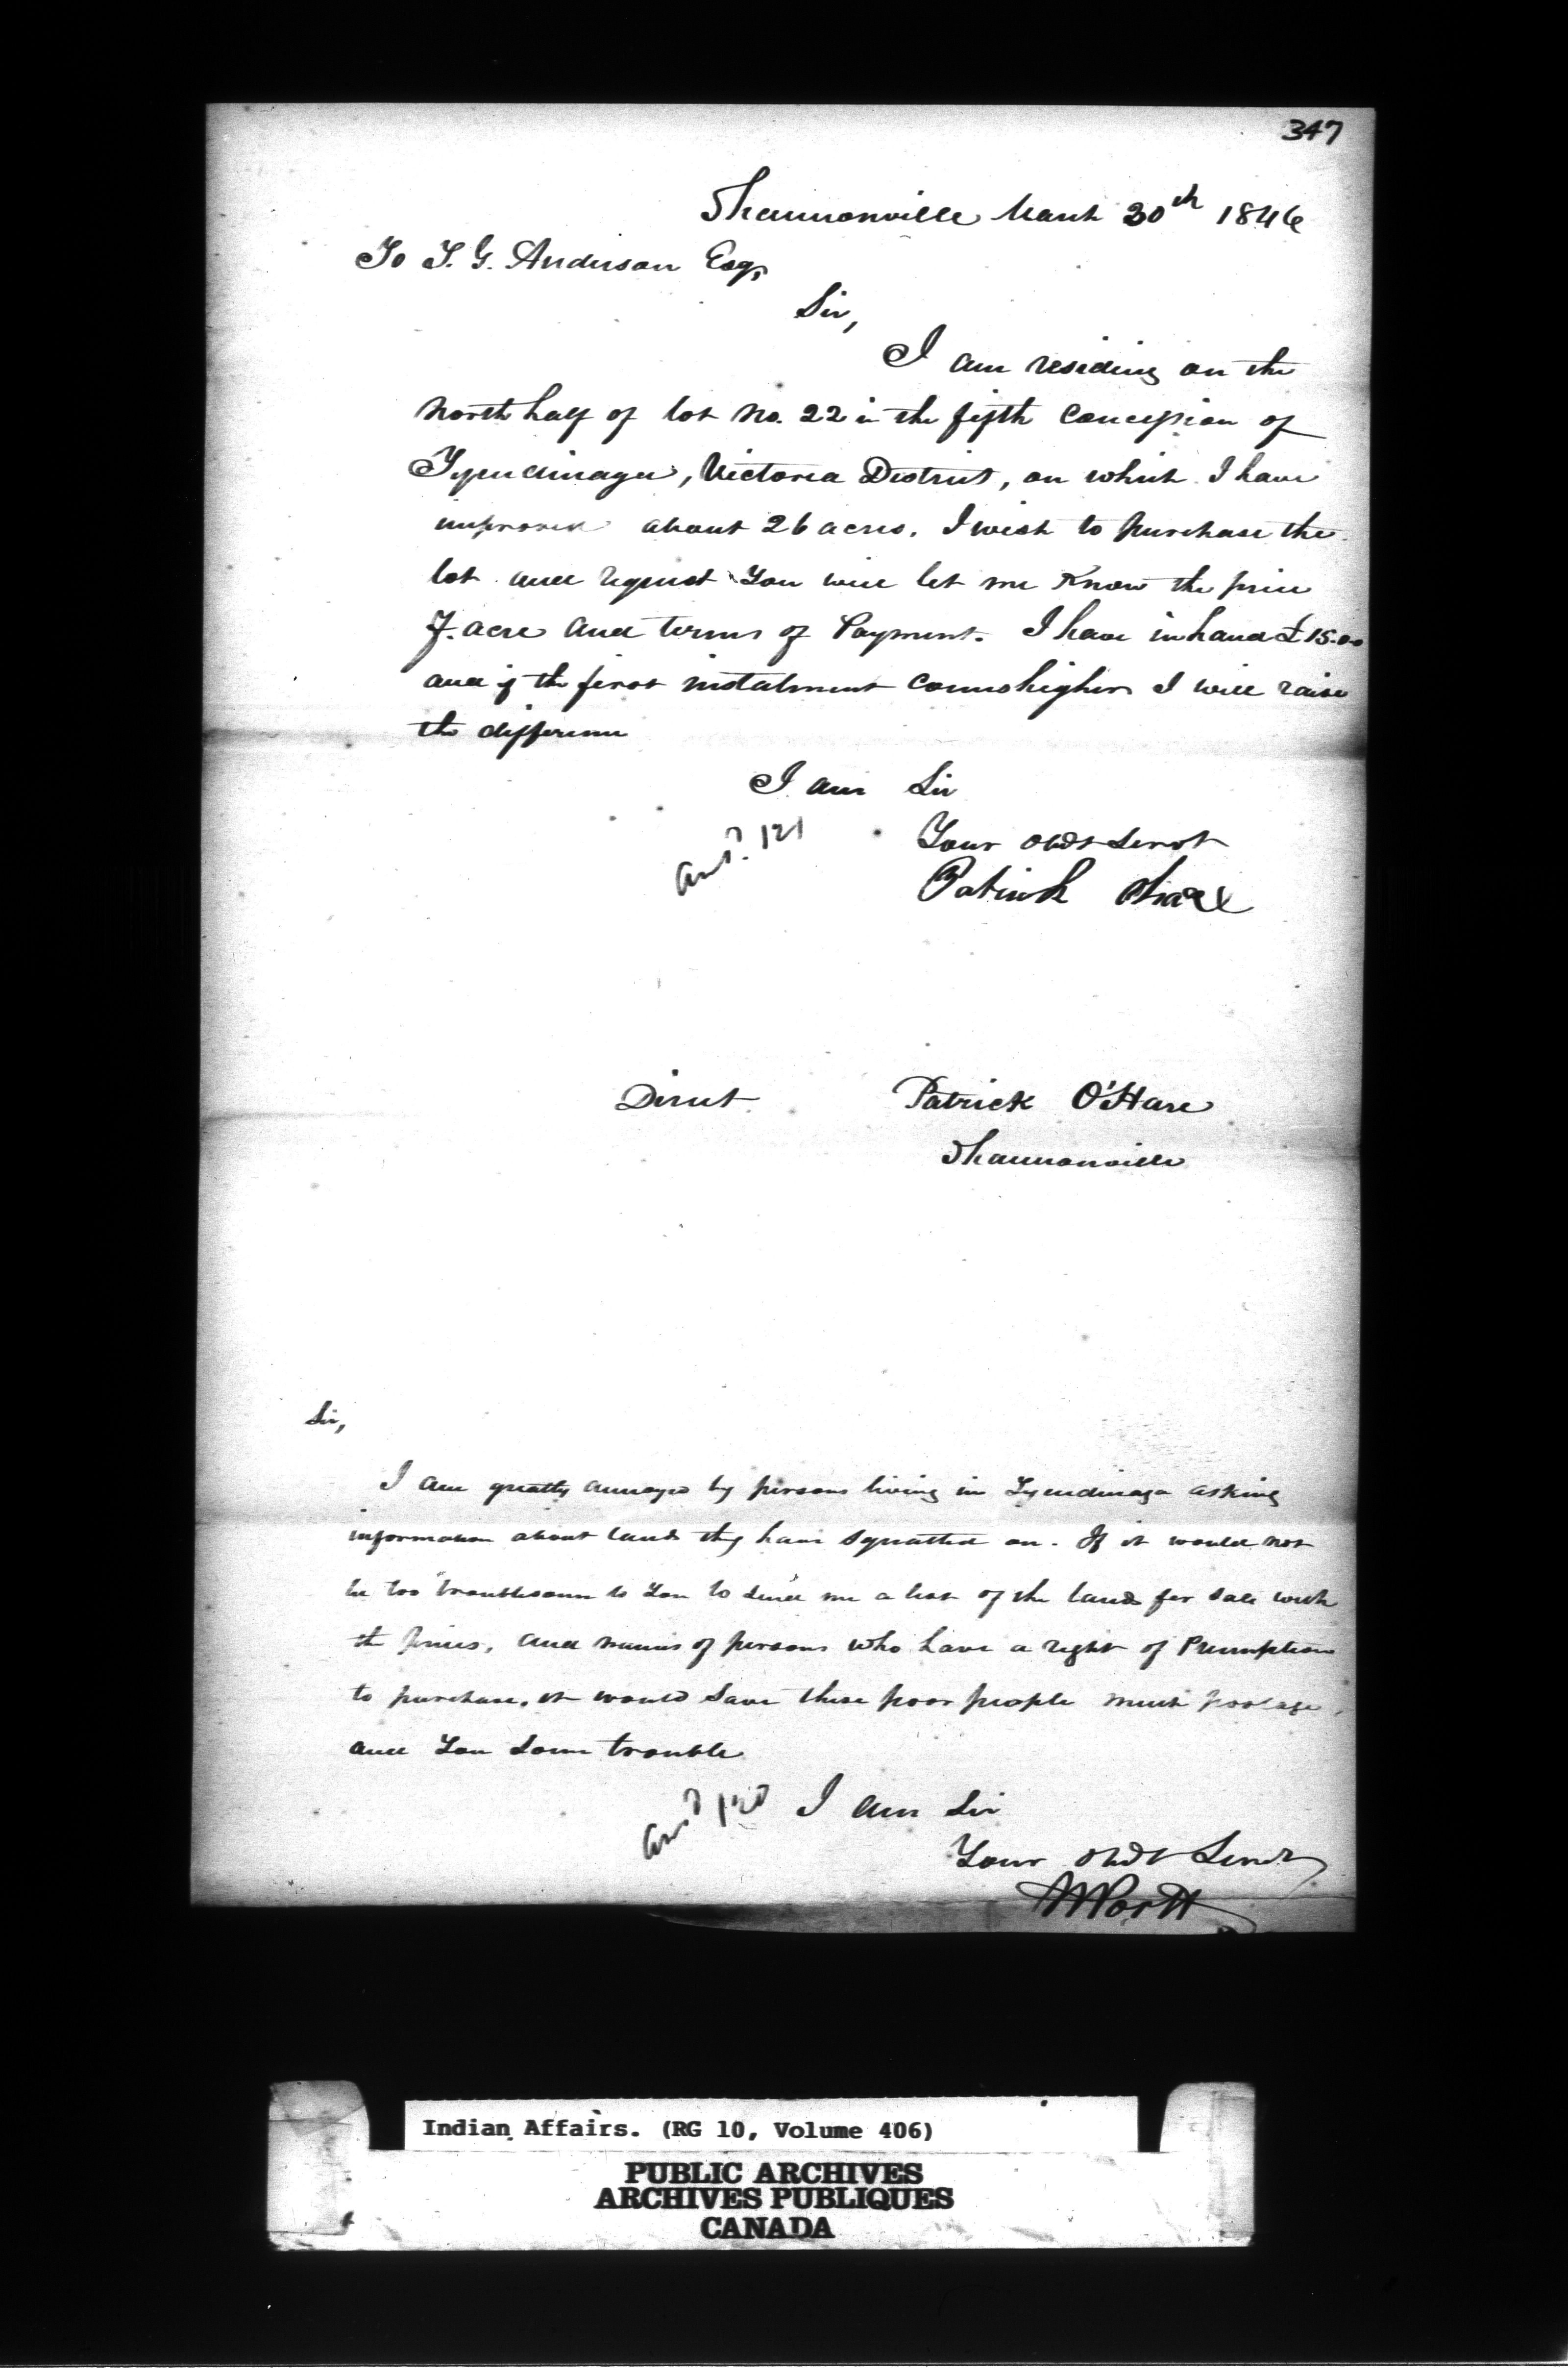 347
Shannonville March 30th 1846
To T. G. Anderson Esqr
Sir,
I am residing on the
North half of lot No. 22 in the fifth Concession of
Tyendinaga, Victoria District, on which I have
improved about 26 acres. I wish to purchase the
lot and request You will let me Know the price
P. acre and terms of Payment. I have in hand £15.0.0
and if the first instalment comes higher I will raise
the difference
I am Sir
Your obdt Servt
Ansd. 121
Patrick Ohare
Direct Patrick O'Hare
Shannonville
Sir,
I am greatly annoyed by persons living in Tyendinaga asking
information about lands they have squatted on. If it would not
be too troublesome to You to send me a list of the lands for sale with
the prices, and names of persons who have a right of Preemption
to purchase, it would save these poor people much postage,
and You some trouble
Ansd 120 I am Sir
Your obdt Servt
Portt
Indian Affairs. (RG 10, Volume 406)
PUBLIC ARCHIVES
ARCHIVES PUBLIQUES
CANADA